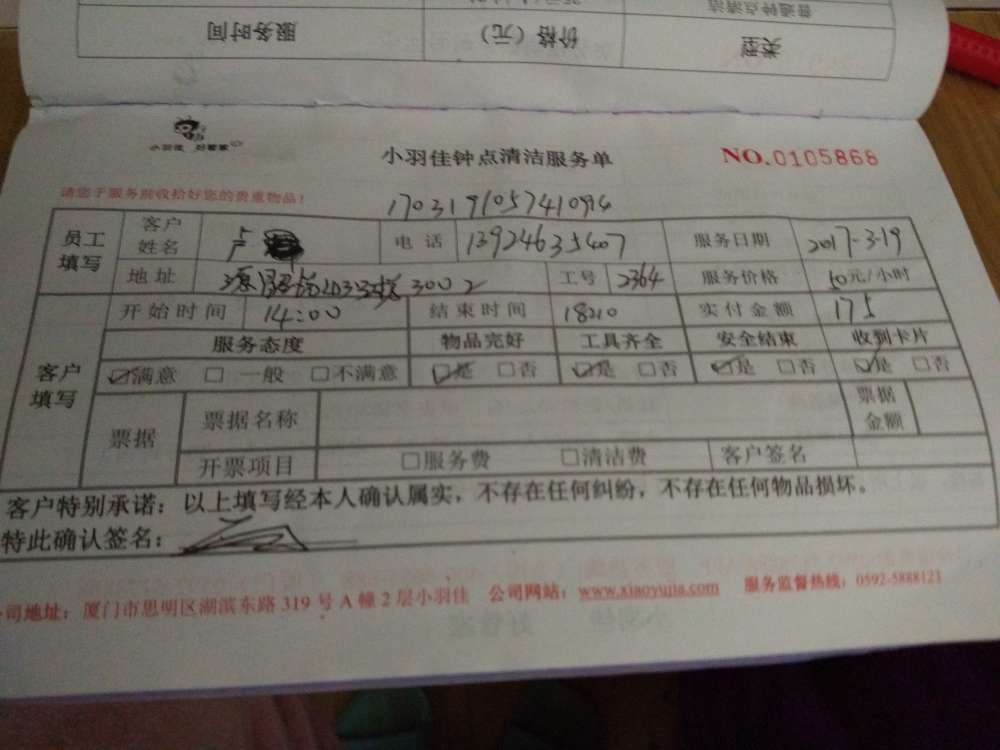 普通钟点清洁
类型 价格（元） 服务时间
小羽佳 好管家
小羽佳钟点清洁服务单 NO.0105868
请您于服务前收拾好您的贵重物品！
170319105741094
员工填写 客户姓名 卢 电话 13924635407 服务日期 2017-3-19
地址 3002 工号 2364 服务价格 50元/小时
客户填写 开始时间 14:00 结束时间 18210 实付金额 175
服务态度 物品完好 工具齐全 安全结束 收到卡片
☑满意 □一般 □不满意 ☑是 □否 ☑是 □否 ☑是 □否 ☑是 □否
票据 票据名称 票据金额
开票项目 □服务费 □清洁费 客户签名
客户特别承诺：以上填写经本人确认属实，不存在任何纠纷，不存在任何物品损坏。
特此确认签名：
司地址：厦门市思明区湖滨东路 319 号 A 幢 2 层小羽佳 公司网站：www.xiaoyujia.com 服务监督热线：0592-5888121